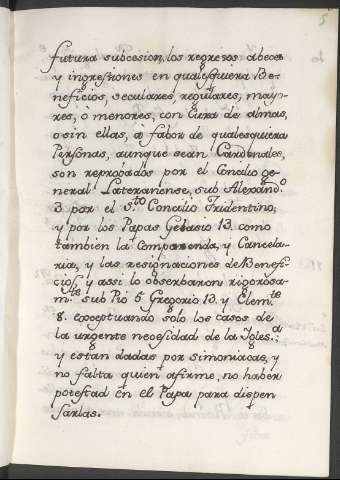 5
futura subcesion, los regresos, accesos
y ingresiones en qualesquiera Be-
neficios, seculares, regulares, mayo-
res, ò menores, con Cura de almas,
o sin ellas, à fabor de qualesquiera
Personas, aunque sean Cardenales,
son reprobados por el Concilio ge-
neral Lateranense, sub Alexand.º
3 por el S.to Concilio Tridentino,
y por los Papas Gelasio 13. como
tambien la Compaenda, y Cancela-
ria, y las resignaciones de Benefi-
cios, y assi lo obserbaron rigorosa-
m.te sub Pio 5 Gregorio 13. y Clem.te
8. exceptuando solo los casos de
la urgente necesidad de la Igles.a
y estan dadas por simoniacas, y
no falta quien afirme, no haber
potestad en el Papa para dispen
sarlas.